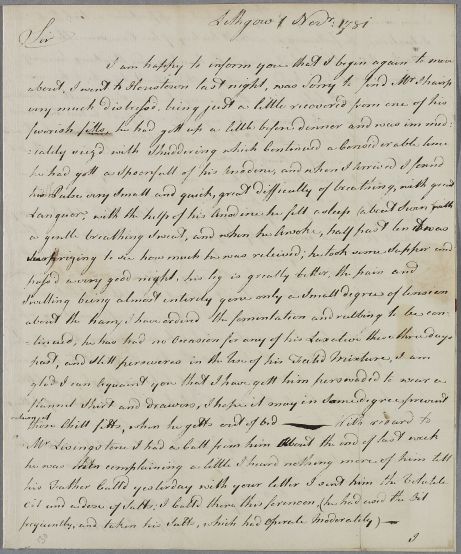 Lithgow 1 Novr. 1781
Sir
I am happy to inform you that I begin again to move
about, I went to Houstown last night, was Sorry to find Mr Sharp
very much distressd, being just a little recovered from one of his
feverish fitts, he had gott up a little before denner and was immed-
-iately seizd with Shuddering which Continued a Considerable time
he had gott a Spoonfull of his Anodine, and when I arrived I found
his Pulse very Small and quick, great difficulty of breathing, with great
Languor; with the help of his Anodine he fell asleep about Seven with
a gentle breathing Sweat, and when he Awoke, half past ten It was
Surprizing to see how much he was relieved; he took some Supper and
passd a very good night, his leg is greatly better, the pain and
Swelling being almost entirely gone only a Small degree of tension
about the ham, I have orderd the fomentation and rubbing to be con-
-tinued, he has had no Occasion for any of his Laxative these three days
past, and Still perseveres in the use of his Foetid Mixture, I am
glad I can acquaint you that I have gott him perswaded to wear a
flannel Shirt and drawers, I hope it may in Some degree prevent
return of
those Chill fitts, when he getts out of bed — With regard to
Mr Livingstone I had a Call from him About the end of last week
he was then complaining a little I heard nothing more of him till
his Father Calld yesterday with your letter I sent him the Volatile
Oil and a dose of Salts; I Calld there this forenoon (he had used the Oil
frequently, and taken his Salts, which had Operate Moderately) —
I